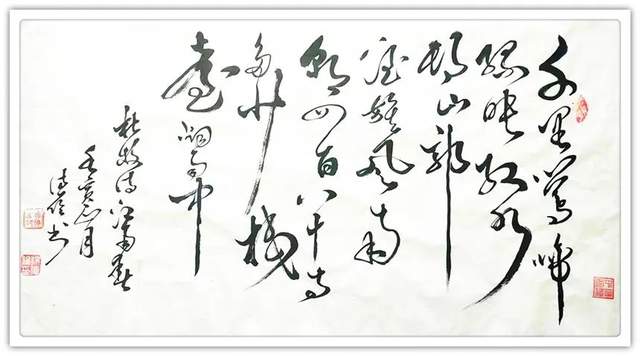 千里莺啼
绿映红水
村山郭
酒旗风南
朝四百八十寺
多少楼
臺烟雨中
杜牧诗江南春
月
书